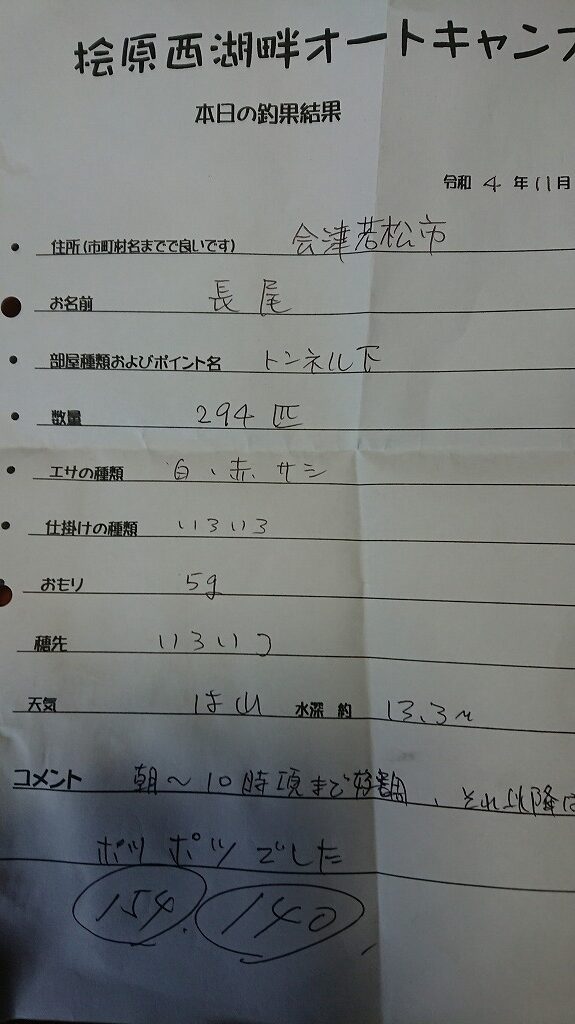 桧原西湖畔オートキャンプ
本日の釣果結果
令和 4 年 11月
住所(市町村名までで良いです) 会津若松市
お名前 長尾
部屋種類およびポイント名 トンネル下
数量 294 匹
エサの種類 白、赤サシ
仕掛けの種類 いろいろ
おもり 5g
穂先 いろいろ
天気 水深 約 13.3m
コメント 朝〜10時頃まで好調、それ以降は
ポツポツでした
154. 140